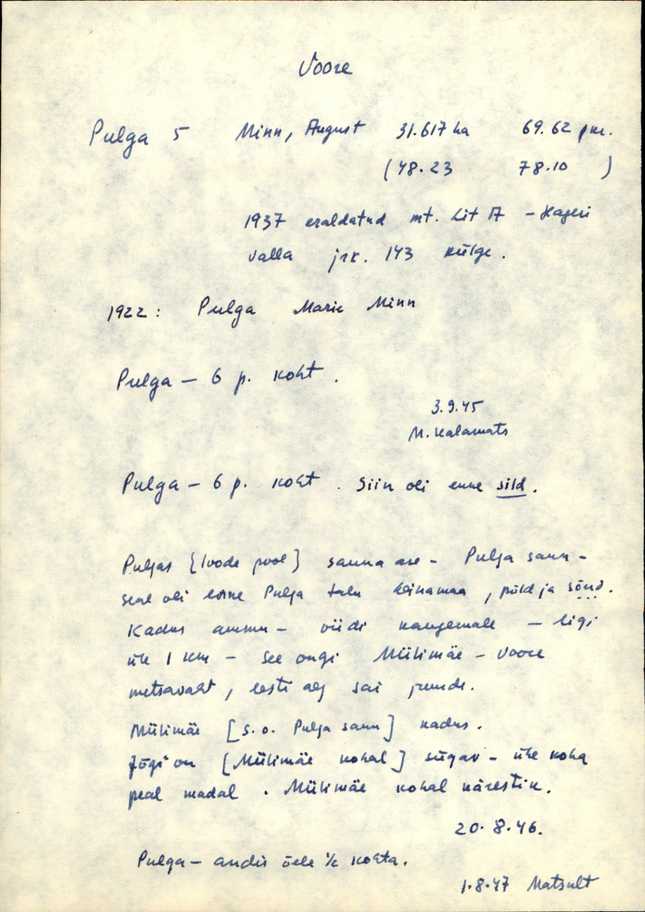 Voore
Pulga 5 Minn, August 31.617 ha 69.62 pkr.
(48.23 78.10 )
1937 eraldatud mt. Lit A - Hageri
valla jrk. 143 külge.
1922: Pulga Marie Minn
Pulga - 6 p. koht.
3.9.45
M. Kalamats
Pulga - 6 p. koht. Siin oli enne sild.
Puljas [loode pool] sauna ase - Pulja saun -
seal oli enne Pulja talu heinamaa, põld ja sõõd.
Kadus ammu - viidi kaugemale - ligi
üle 1 km - See ongi Mülimäe - Voore
metsavaht, eesti aeg sai juurde.
Mülimäe [s.o. Pulja saun] kadus.
Jõgi on [Mülimäe kohal] sügav - ühe koha
peal madal. Mülimäe kohal kärestik.
20.8.46.
Pulga - andis õele ½ kohta.
1.8.47 Matsult